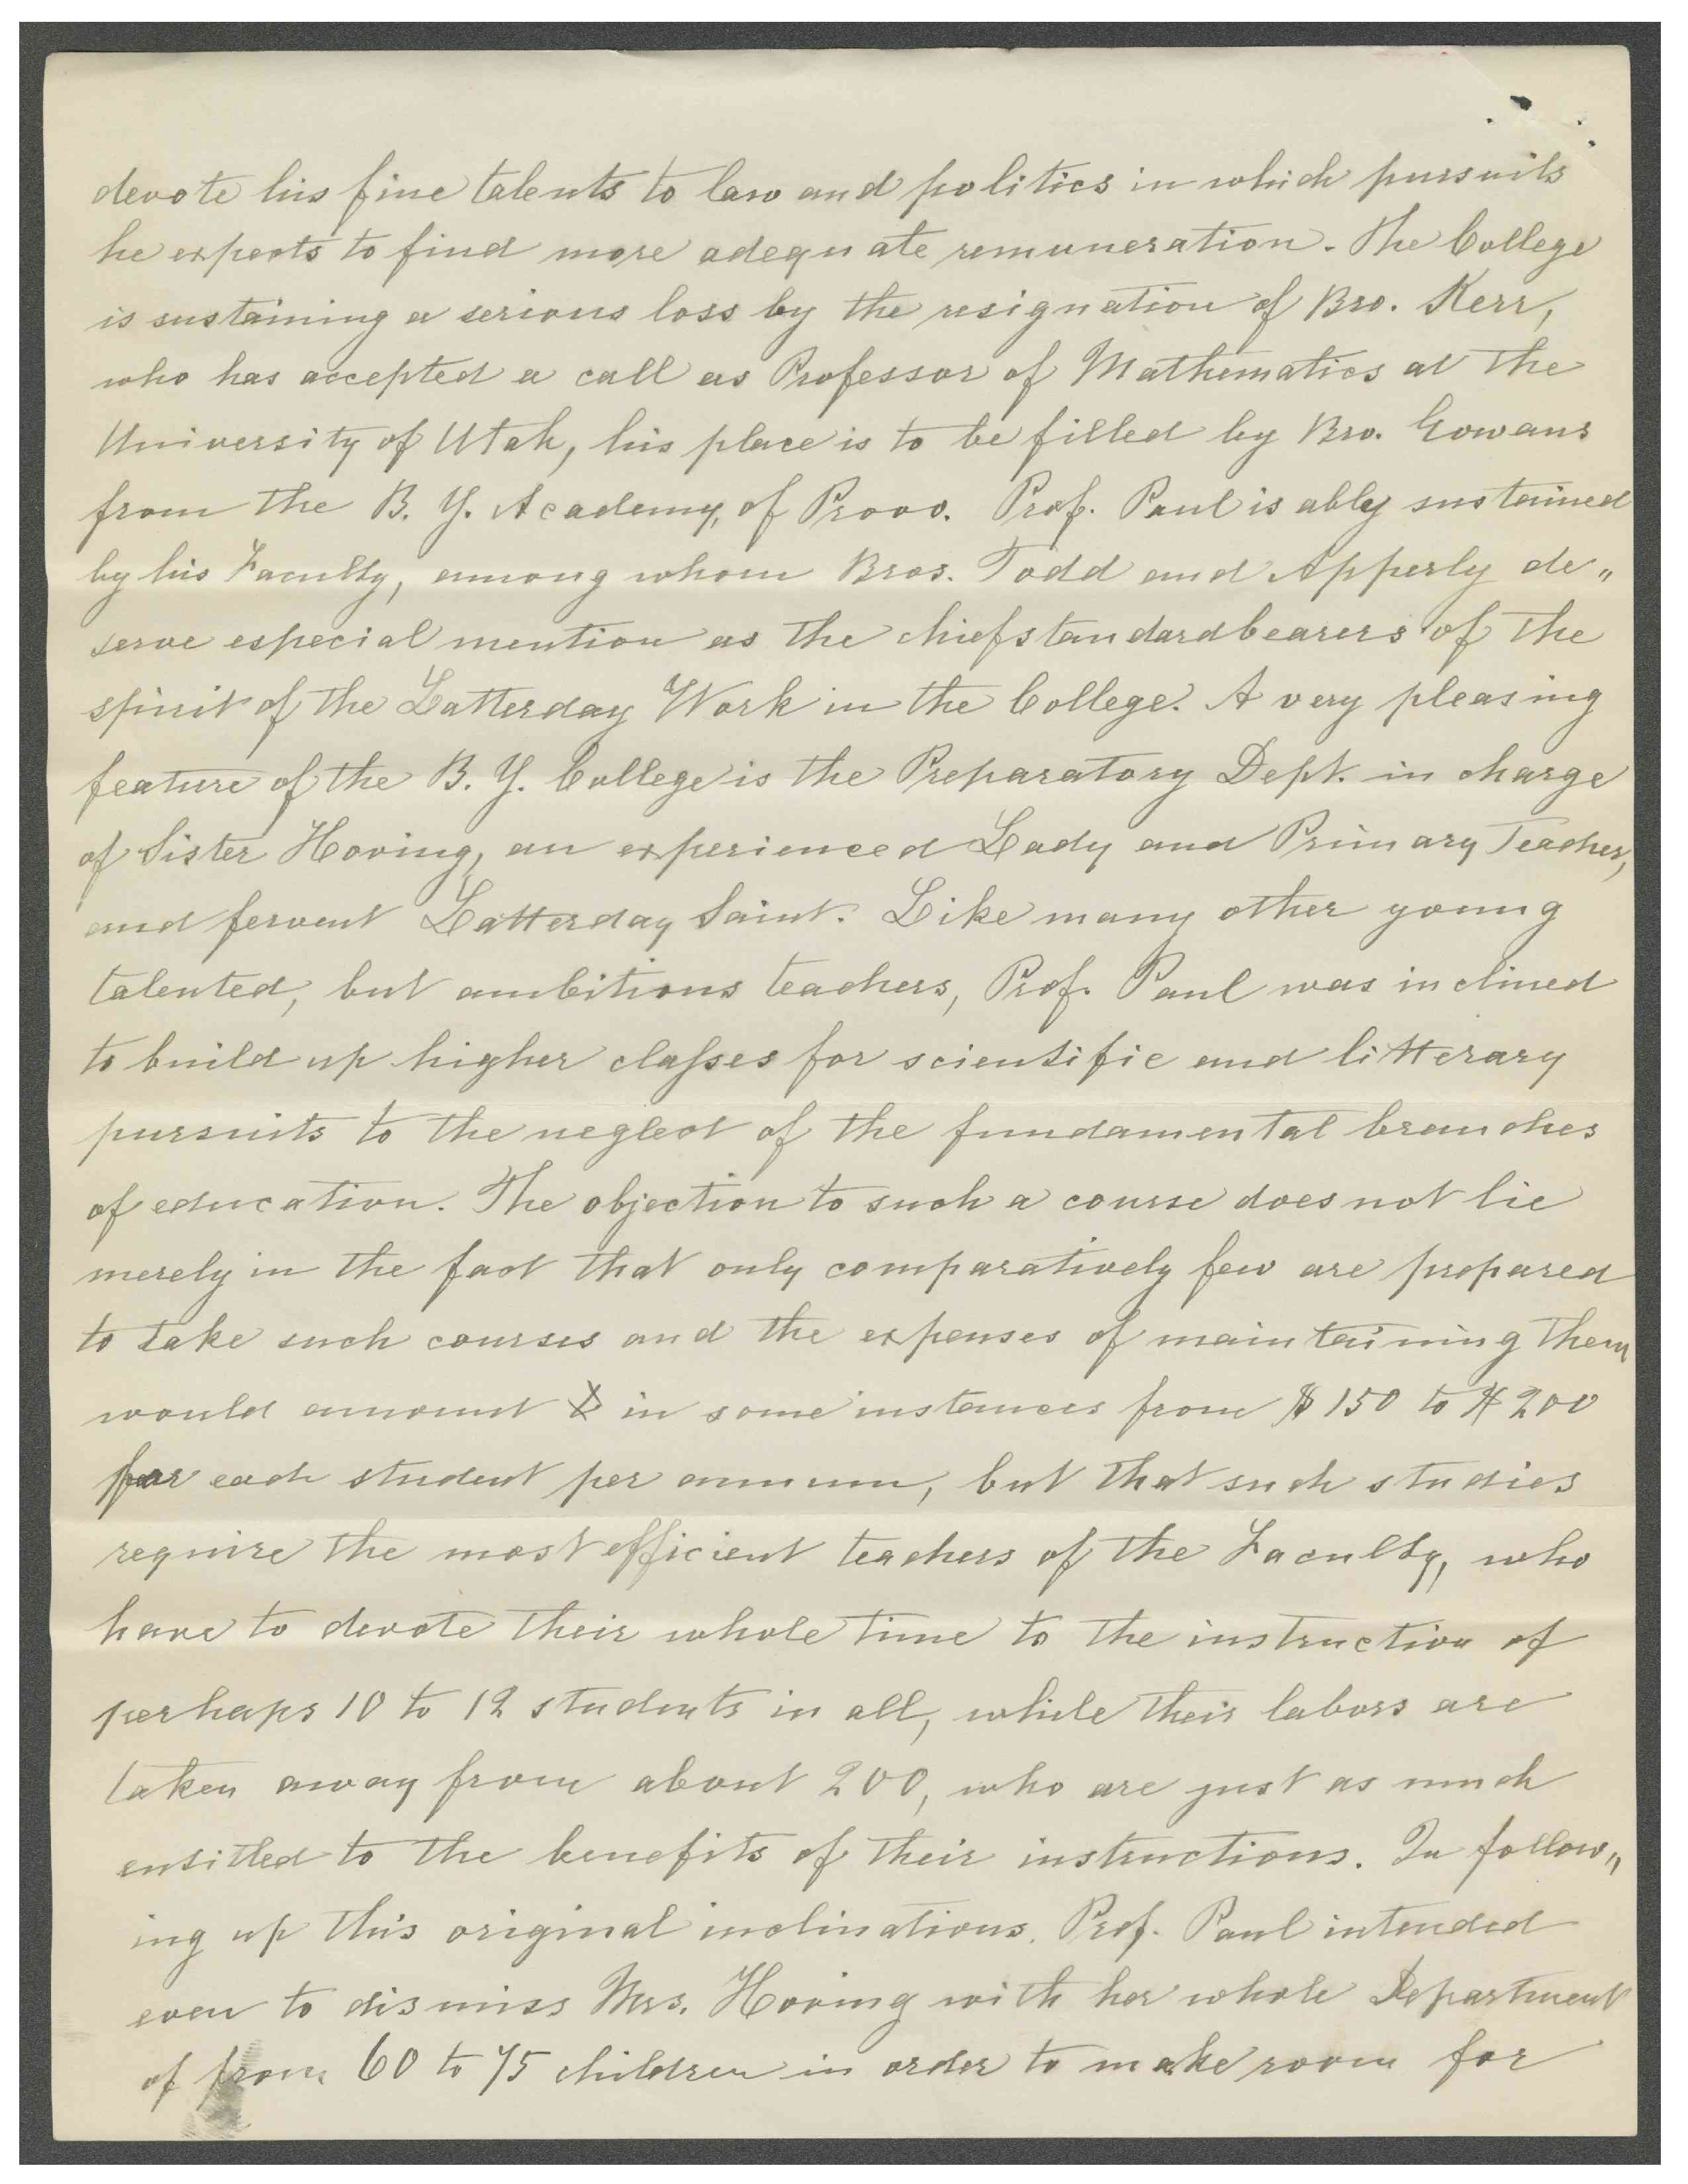 devote his fine talents to law and politics in which pursuits
he expects to find more adequate remuneration. The College
is sustaining a serious loss by the resignation of Bro. Kerr,
who has accepted a call as Professor of Mathematics at the
University of Utah, his place is to be filled by Bro. Gowans
from the B. Y. Academy, of Provo. Prof. Paul is ably sustained
by his Faculty, among whom Bros. Todd and Apperly de„
serve especial mention as the chief standardbearers of the
spirit of the Latterday Work in the College. A very pleasing
feature of the B. Y. College is the Preparatory Dept. in charge
of Sister Hoving, an experienced Lady and Primary Teacher,
and fervent Latterday Saint. Like many other young
talented, but ambitious teachers, Prof. Paul was inclined
to build up higher classes for scientific and litterary
pursuits to the neglect of the fundamental branches
of education. The objection to such a course does not lie
merely in the fact that only comparatively few are prepared
to take such courses and the expenses of maintaining them
would amount in some instances from $150 to $200
for each student per annum, but that such studies
require the most efficient teachers of the Faculty, who
have to devote their whole time to the instruction of
perhaps 10 to 12 students in all, while their labors are
taken away from about 200, who are just as much
entitled to the benefits of their instructions. In follow„
ing up this original inclinations, Prof. Paul intended
even to dismiss Mrs. Hoving with her whole Department
of from 60 to 75 children in order to make room for